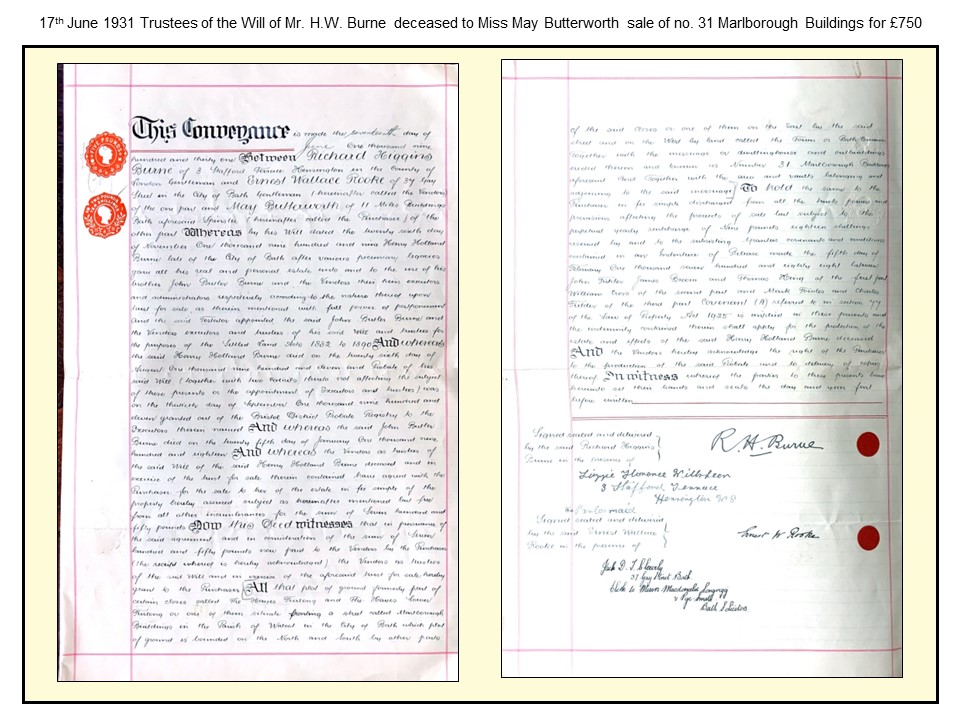 17th June 1931 Trustees of the Will of Mr. H.W. Burne deceased to Miss May Butterworth sale of no. 31 Marlborough Buildings for £750
This Conveyance is made the seventeenth day of
June One thousand nine
hundred and thirty one Between Richard Higgins
Burne of 3 Stafford Terrace Kensington in the County of
London Gentleman and Ernest Wallace Rooke of 27 Gay
Street in the City of Bath Gentleman (hereinafter called the Vendors)
of the one part and May Butterworth of 11 Miles Buildings
Bath aforesaid Spinster (hereinafter called the Purchaser) of the
other part Whereas by his Will dated the twenty sixth day
of November One thousand nine hundred and nine Henry Holland
Burne late of the City of Bath after various pecuniary legacies
gave all his real and personal estate unto and to the use of his
brother John Butler Burne and the Vendors their heirs executors
and administrators respectively according to the nature thereof upon
trust for sale as therein mentioned with full power of postponement
And the said Testator appointed the said John Butler Burne and
the Vendors executors and trustees of his said Will and trustees for
the purposes of the Settled Land Acts 1882 to 1890 And whereas
the said Henry Holland Burne died on the twenty sixth day of
August One thousand nine hundred and eleven and Probate of his
said Will (together with two Codicils thereto not affecting the subject
of these presents or the appointment of Executors and trustees) was
on the thirtieth day of September One thousand nine hundred and
eleven granted out of the Bristol District Probate Registry to the
Executors therein named And whereas the said John Butler
Burne died on the twenty fifth day of January One thousand nine
hundred and eighteen And whereas the Vendors as trustees of
the said Will of the said Henry Holland Burne deceased and in
exercise of the trust for sale therein contained have agreed with the
Purchaser for the sale to her of the estate in fee simple of the
property hereby assured subject as hereinafter mentioned but free
from all other incumbrances for the sum of Seven hundred and
fifty pounds Now this Deed witnesses that in pursuance of
the said agreement and in consideration of the sum of Seven
hundred and fifty pounds now paid to the Vendors by the Purchaser
(the receipt whereof is hereby acknowledged) the Vendors as trustees
of the said Will and in exercise of the aforesaid trust for sale hereby
grant to the Purchaser All that plot of ground formerly part of
certain closes called The Hayes Furlong and The Hayes Lower
Furlong or one of them situate fronting a street called Marlborough
Buildings in the Parish of Walcot in the City of Bath which plot
of ground is bounded on the North and South by other parts
of the said closes or one of them on the East by the said
street and on the West by land called the Town or Bath Common
Together with the messuage or dwellinghouse and outbuildings
erected thereon and known as Number 31 Marlborough Buildings
aforesaid And Together with the area and vaults belonging and
appertaining to the said messuage To hold the same to the
Purchaser in fee simple discharged from all the trusts powers and
provisions affecting the proceeds of sale but subject to the
perpetual yearly rentcharge of Nine pounds eighteen shillings
reserved by and to the subsisting covenants and conditions
contained in an Indenture of Release made the fifth day of
February One thousand seven hundred and eighty eight between
John Fielder James Broom and Thomas King of the first part
William Cross of the second part and Mark Fowles and Charles
Fielder of the third part Covenant (A) referred to in section 77
of the Law of Property Act 1925 is implied in these presents and
the indemnity contained therein shall apply for the protection of the
estate and effects of the said Henry Holland Burne deceased
And the Vendors hereby acknowledge the right of the Purchaser
to the production of the said Probate and to delivery of copies
thereof In witness whereof the parties to these presents have
hereunto set their hands and seals the day and year first
before written
Signed sealed and delivered
by the said Richard Higgins
Burne in the presence of
R. H. Burne
Lizzie Florence
3 Stafford Terrace
Kensington W8
Parlormaid
Signed sealed and delivered
by the said Ernest Wallace
Rooke in the presence of
Ernest W Rooke
Jack D. T.
27 Gay Street Bath
Clerk to Messrs
Bath Solicitors